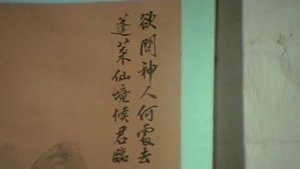 欲闻神人何處去
蓬莱仙境候君臨